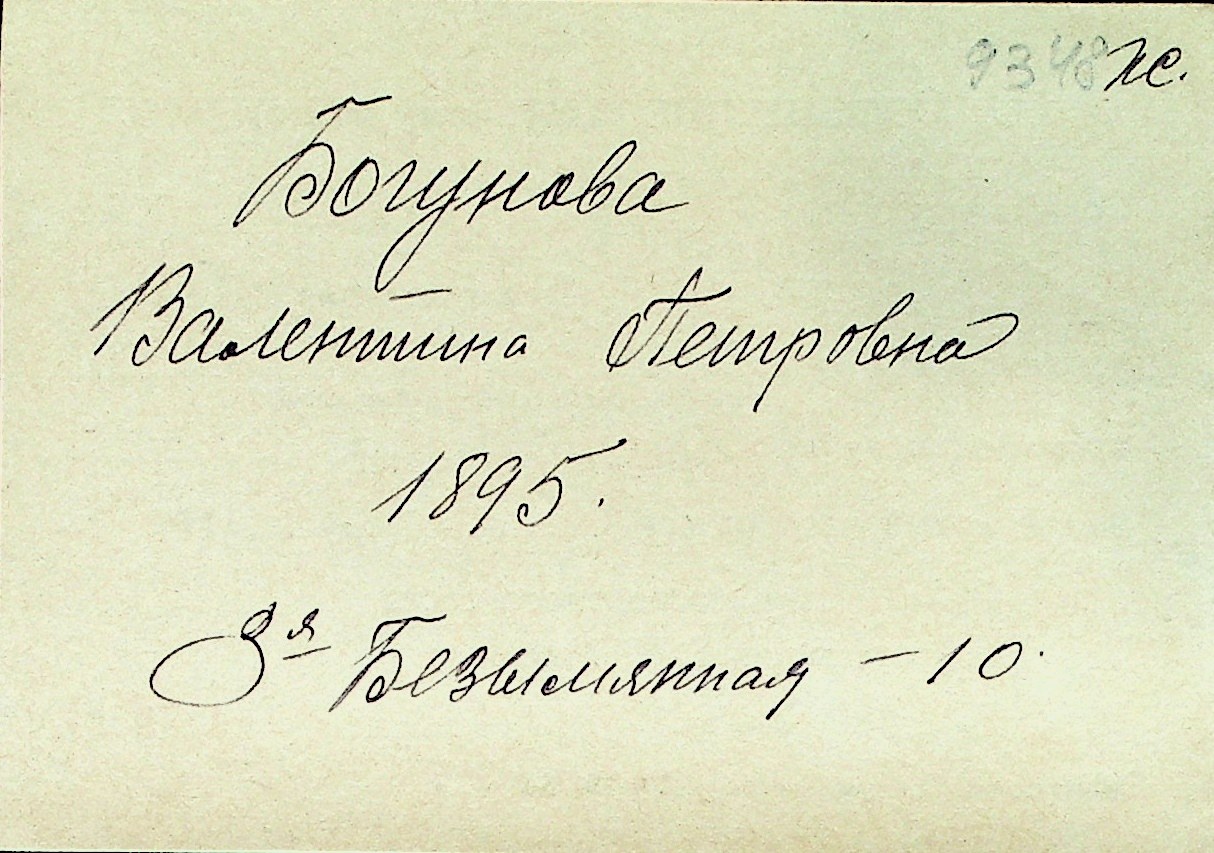 9348 пс.
Богунова
Валентина Петровна
1895.
3я Безымянная – 10.